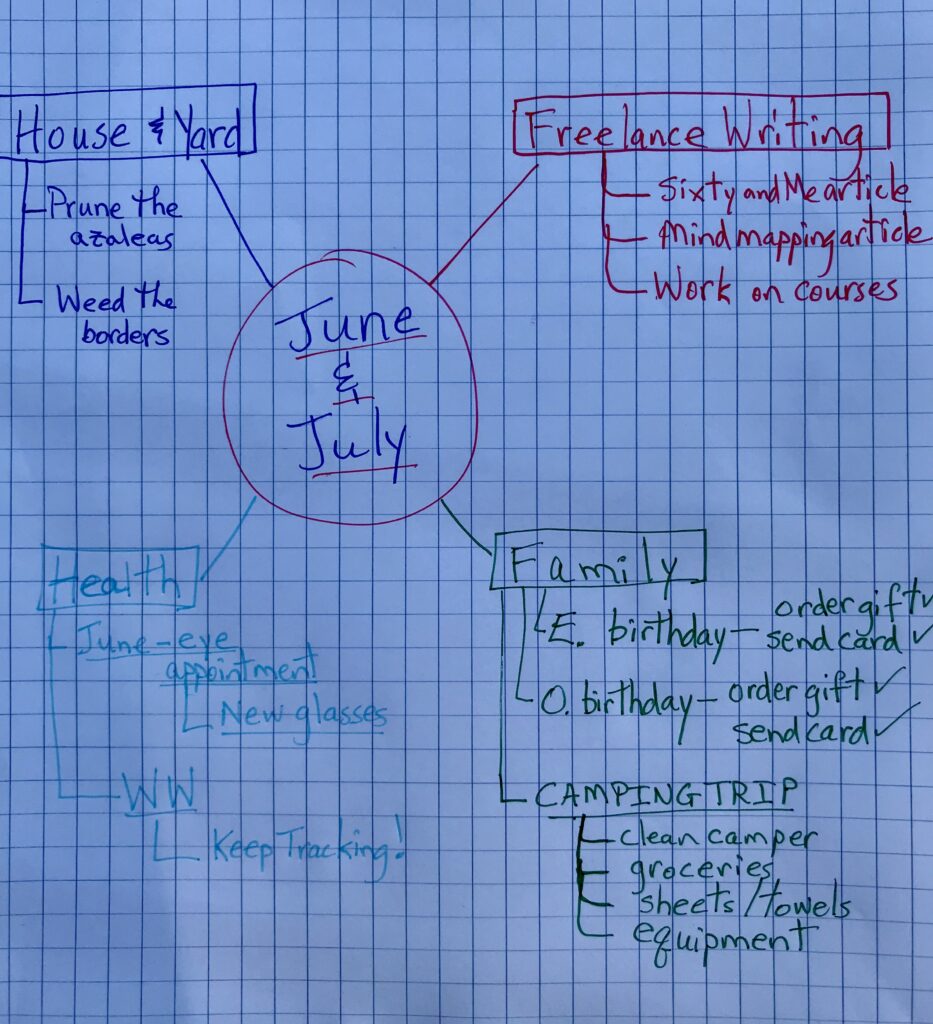 House & Yard
Prune the
azaleas
Weed the
borders
Freelance Writing
Sixty and Me article
Mind mapping article
Work on courses
June
&
July
Health
June - eye
appointment
New glasses
WW
Keep Tracking!
Family
E. birthday - order gift ✓
send card ✓
O. birthday - order gift ✓
send card ✓
CAMPING TRIP
clean camper
groceries
sheets/towels
equipment